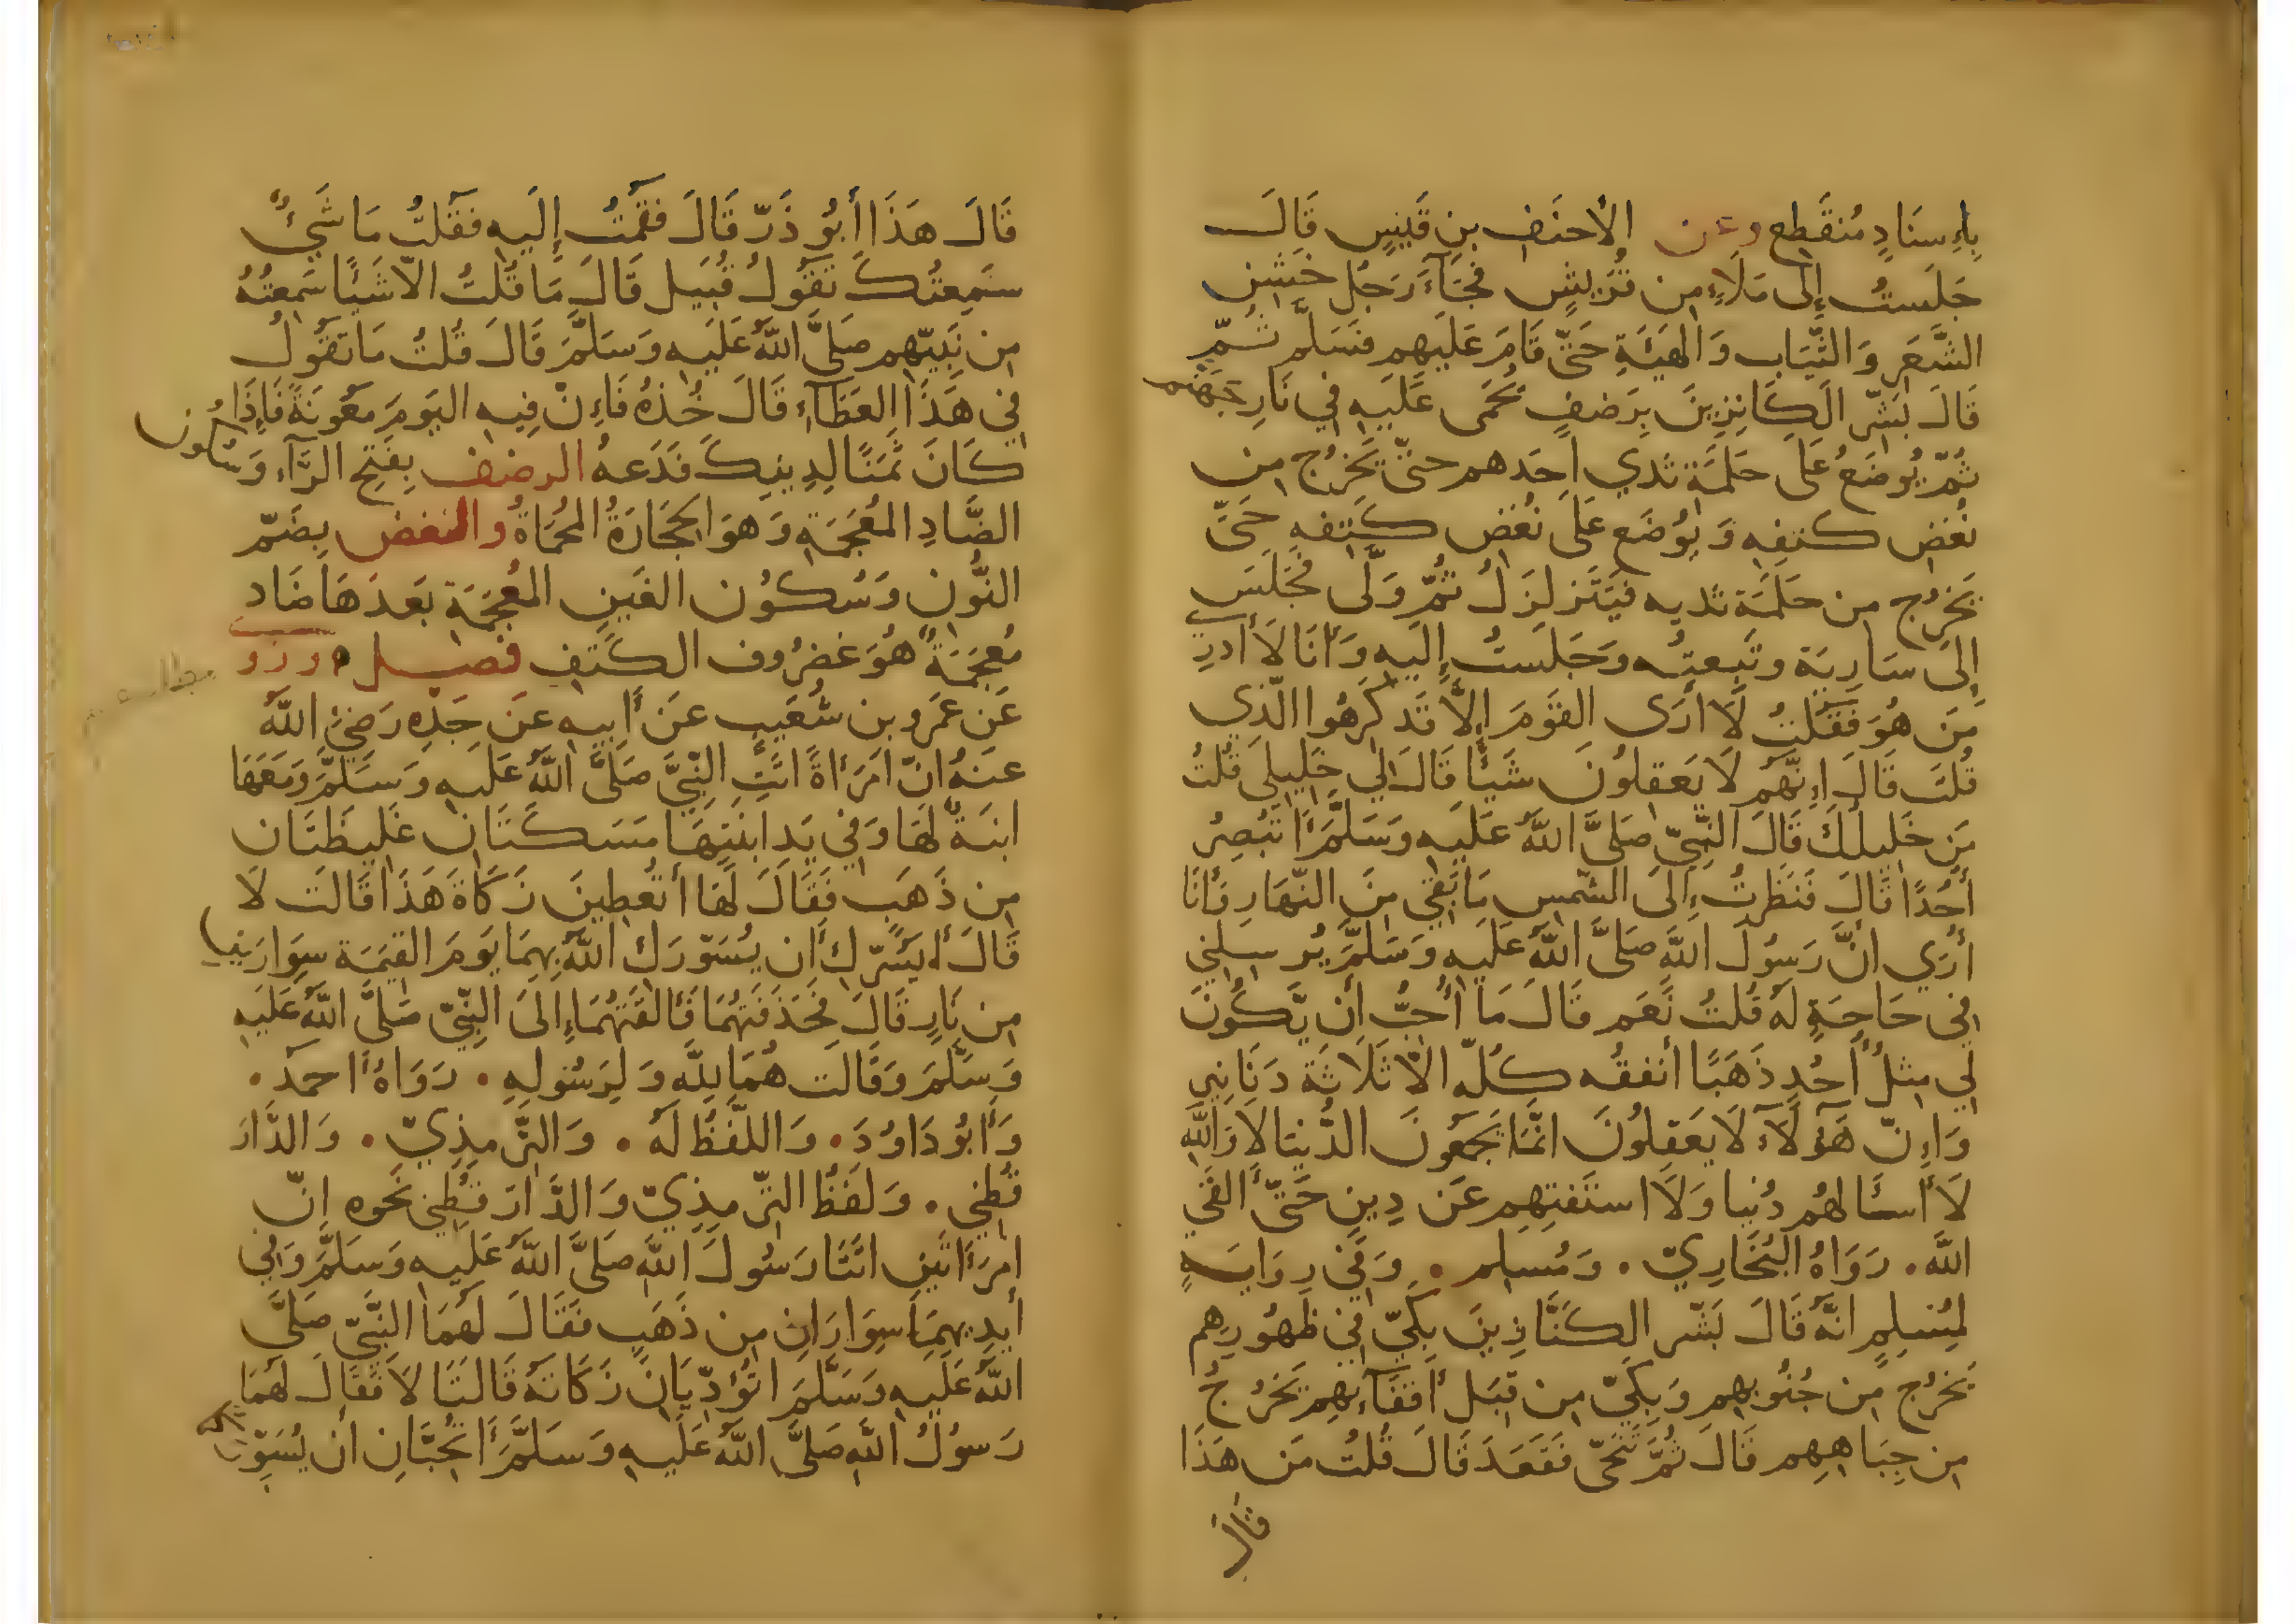 بِإِسنَادٍ مُنقَطِعٍ وعن الأحنَفِ بنِ قَيسٍ قَالَ
جَلَستُ إِلَى مَلَاءٍ مِن قُرَيشٍ فَجَآءَ رَجُل خَشِنِ
الشَّعَرِ وَالثِّيَابِ وَالهَيئَةِ حَتَّى قَامَ عَلَيهِم فَسَلَّمَ ثُمّ
قَالَ بَشِّرِ الكَانِزِينَ بِرَضفٍ يُحمَى عَلَيهِ فِي نَارِ جَهنّم
ثُمّ يُوضَعُ عَلَى حَلَمَةِ ثَدي اَحِدَهم حتّى يَخرُج مِن
نُغضِ كتفِهِ وَيُوضَع عَلَى نُغضِ كَتِفِهِ حَتّى
يَخرُج مِن حَلَمَة ثديهِ فَيَتَزلزَلُ ثُمّ وَلّى فَجَلَسَ
إِلَى سَارِيَة وتَبِعتُه وَجَلَستُ إِلَيهِ وَأنَا لَا أدرِي
مَن هُوَ فَقُلتُ لَا أرَى القَومَ إِلَّا قَد كَرِهُوا الّذِي
قُلتَ قَالَ إِنَّهُم لَا يَعقِلُونَ شَيأً قَالَ لِي خَلِيلِي قُلتُ
مَن خَلِيلُكَ قَالَ النَّبِيّ صَلَّى اللّهُ عَلَيهِ وَسَلَّمَ أتُبصِرُ
أُحُدًا قَالَ فَنَظَرتُ إِلَى الشّمسِ مَا بَقِيَ مِنَ النّهَارِ وَأنَا
أُرَي أنَّ رَسُولَ اللّهِ صَلَّى اللّهُ عَلَيهِ وَسَلَّمَ يُرسِلنِي
فِي حَاجَةٍ لَهُ قُلتُ نَعَم قَالَ مَا أُحِبُّ أن يَّكُونَ
لِي مِثلُ أُحُدٍ ذَهَبًا أنفقُه كُلّه الّا ثَلَاثَة دَنَانِير
وَإِنّ هَؤلَآءِ لَا يَعقِلُونَ انَّمَا يَجمَعُونَ الدُّنيَا لَا وَاللّهِ
لَا أسـألهُم دُنيا وَلَا استَفتِهِم عَن دِينٍ حَتّى ألقَي
اللّهَ . رَوَاهُ البُخَارِيّ . وَمُسلِم . وَفي رِوَايَـةٍ
لمُسلِمٍ انّهُ قَالَ بَشّر الكَنَّازِينَ بِكَيّ فِي ظُهُورِهِم
يَخرُج مِن جُنُوبِهِم وَبِكَيّ مِن قِبَلِ أقفَآءِهِم يَخرُجُ
مِن جِبَاهِهِم قَالَ ثُمَّ تَنَحّى فَقَعَدَ قَالَ قُلتُ مَن هَذَا
قَالَ
قَالَ هَذَا أبُو ذَرّ قَالَ فَقُمتُ إِلَيهِ فَقُلتُ مَا شَيءٌ
سَمِعتُكَ تَقُولُ قُبَيل قَالَ مَا قُلتُ الّا شَيئًا سَمِعتُهُ
مِن نَبِيّهِم صَلَّى اللّهُ عَلَيهِ وَسَلَّمَ قَالَ قُلتُ مَا تَقُولُ
فِي هَذَا العَطَآءِ قَالَ خُذهُ فَإِنّ فِيهِ اليَومَ مَعُونَةً فَإِذَا
كَانَ ثَمَنًا لِدِينِكَ فَدَعهُ الرضف بِفَتِحِ الرَّآءِ وَسُكُون
الضَّادِ المُعجَمَةِ وَهوَ الحِجَارَةُ المُحمَاةُ والنغض بِضَمّ
النُّونِ وَسُكُون الغَينِ المُعجَمَة بَعدَهَا ضَاد
مُعجَمَةً هُوَ غضرُوف الكَتَفِ فصـل
عَن عَمرو بن شُعَيبٍ عَن أبِيهِ عَن جَدِّهِ رَضِيَ اللّهُ
عَنهُ انّ امرَأةً أتَتِ النّبِيَّ صَلَّى اللّهُ عَلَيهِ وَسَلَّمَ وَمَعَهَا
ابنَةٌ لَهَا وَفِي يَدِ ابنَتِهَا مَسَكَتَانِ غَلِيظَتَان
مِن ذَهَبٍ فَقَالَ لَهَا أتُعطِينَ زَكَاةَ هَذَا قَالَت لَا
قَالَ أيَسُرّكِ أن يُسَوّرَكِ اللّهُ بِهِمَا يَومَ القِيمَة سِوَارَينِ
مِن نَارٍ قَالَ فَحَذَفَتهُمَا فَألقَتهُمَا إِلَى النّبِيّ صَلَّى اللّهُ عَلَيهِ
وَسَلَّمَ وَقَالَت هُمَا لِلّهِ وَلِرَسُولِهِ . رَوَاهُ أحمَد .
وَأبُو دَاوُدَ . وَاللّفظُ لَهُ . وَالتِّرمِذِيّ . وَالدَّارَ
قُطنِي . وَلَفظُ التّرمِذِيّ وَالدَّارَقُطنِي نَحوه إنّ
امرَأتَينِ اتَتَا رَسُولَ اللّهِ صَلَّى اللّهُ عَلَيهِ وَسَلَّمَ وَفِي
أيدِيهِمَا سِوَارَانِ مِن ذَهَبٍ فَقَالَ لَهُمَا النَّبِيّ صَلَّى
اللّهُ عَلَيهِ وَسَلَّمَ اتُؤَدِّيَانِ زَكَاتَهُ قَالَتَا لَا فَقَالَ لَهُمَا
رَسولُ اللّهِ صَلَّى اللّهُ عَلَيهِ وَسَلَّمَ أتُحِبَّانِ أن يُسَوِّرَ